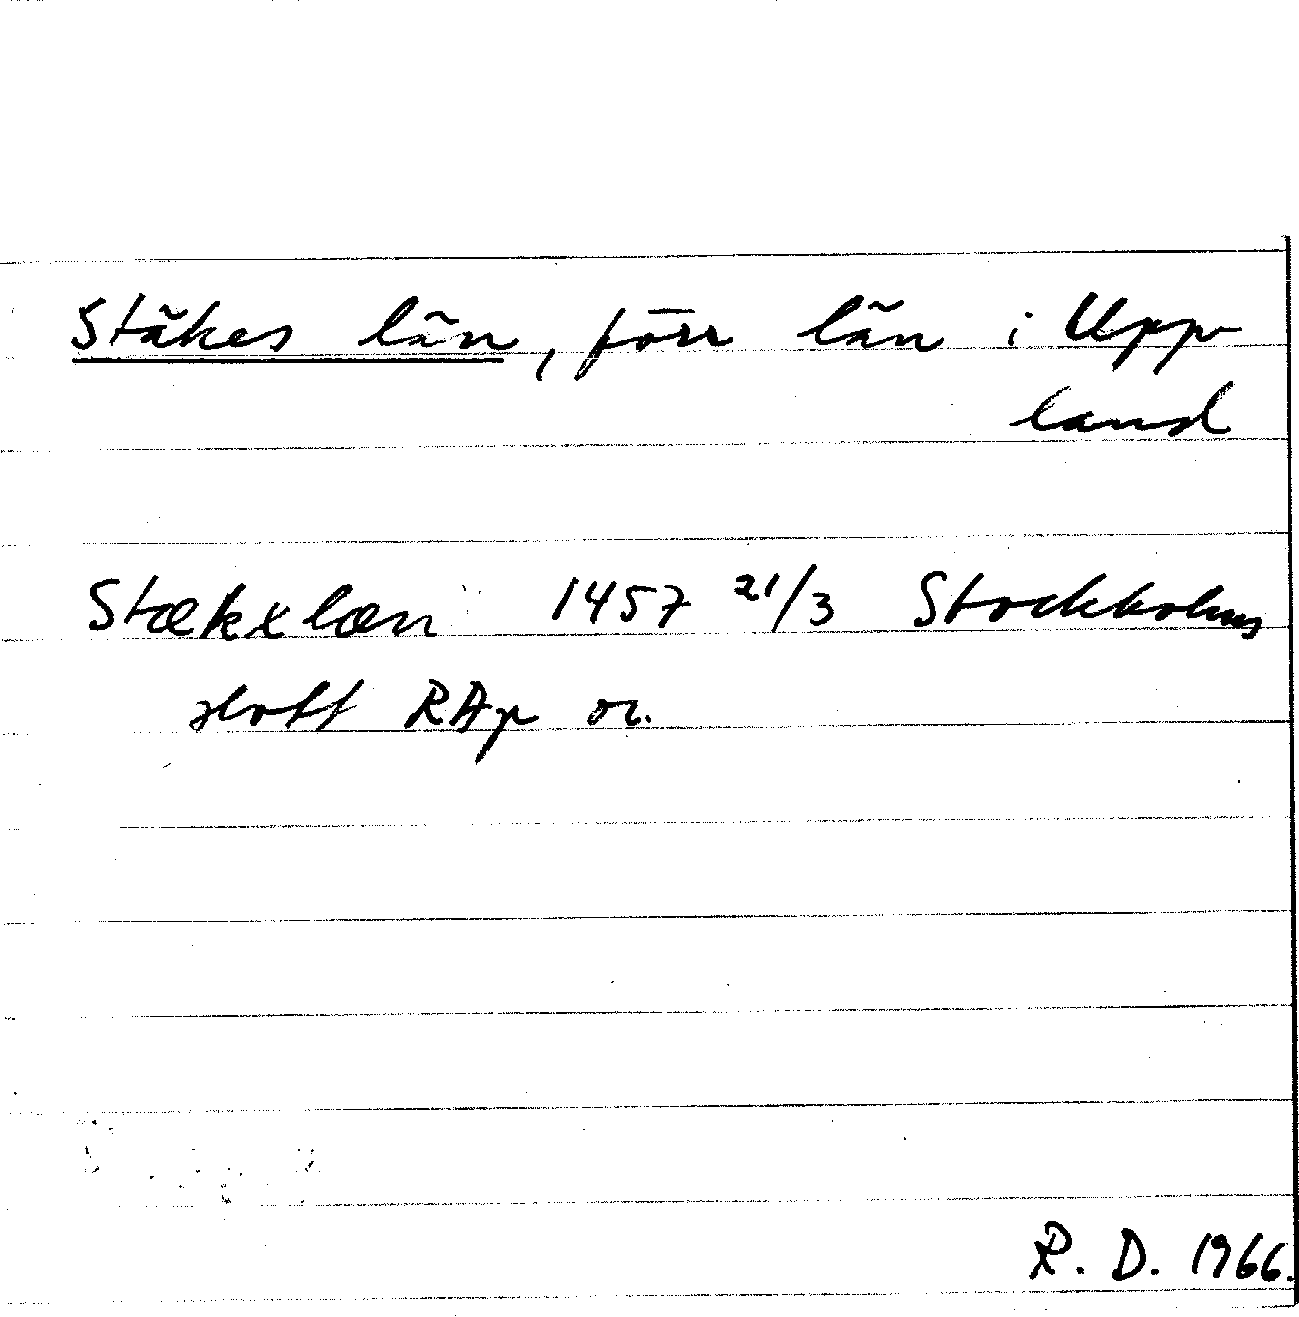 Stäkes län, förr län i Upp
land
Stækxlæn 1457 21/3 Stockholms
slott RAp or.
R. D. 1966.